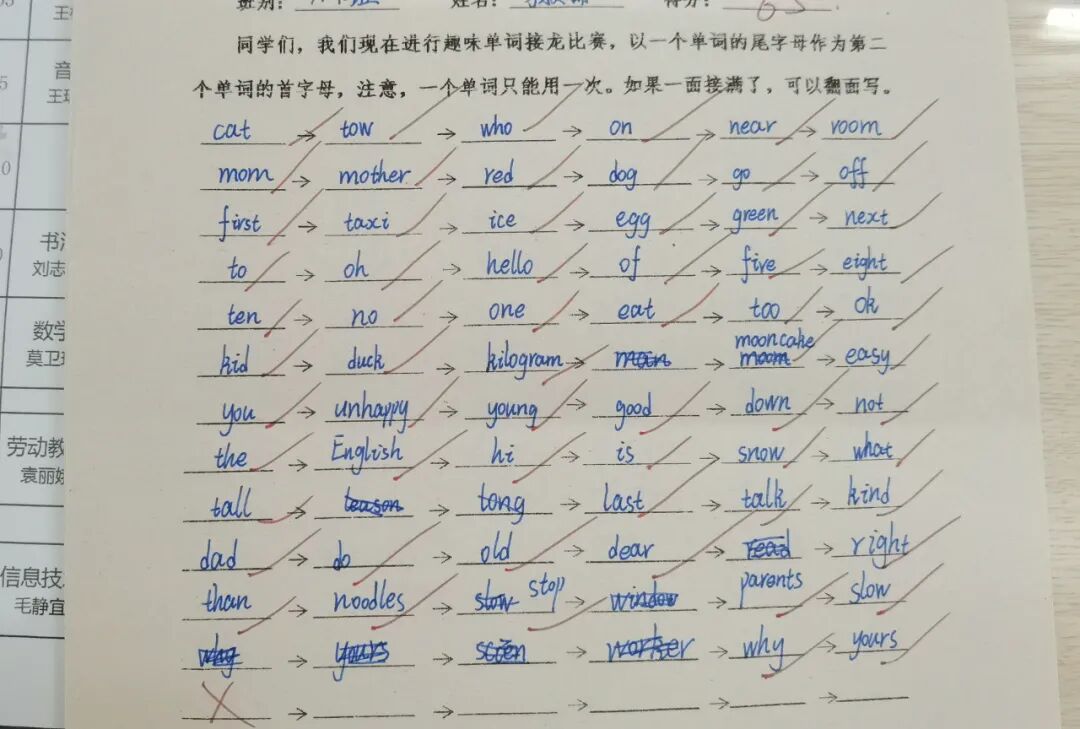 班别: 姓名: 得分: 65
同学们，我们现在进行趣味单词接龙比赛，以一个单词的尾字母作为第二
个单词的首字母，注意，一个单词只能用一次。如果一面接满了，可以翻面写。
cat → tow → who → on → near → room
mom → mother → red → dog → go → off
first → taxi → ice → egg → green → next
to → oh → hello → of → five → eight
ten → no → one → eat → too → ok
kid → duck → kilogram → → mooncake → easy
you → unhappy → young → good → down → not
the → English → hi → is → snow → what
tall → → long → last → talk → kind
dad → do → old → dear → → right
than → noodles → stop → → parents → slow
→ → → → why → yours
→ → → → →
音
王
书
刘志
数学
莫卫
劳动教
袁丽
信息技
毛静宜